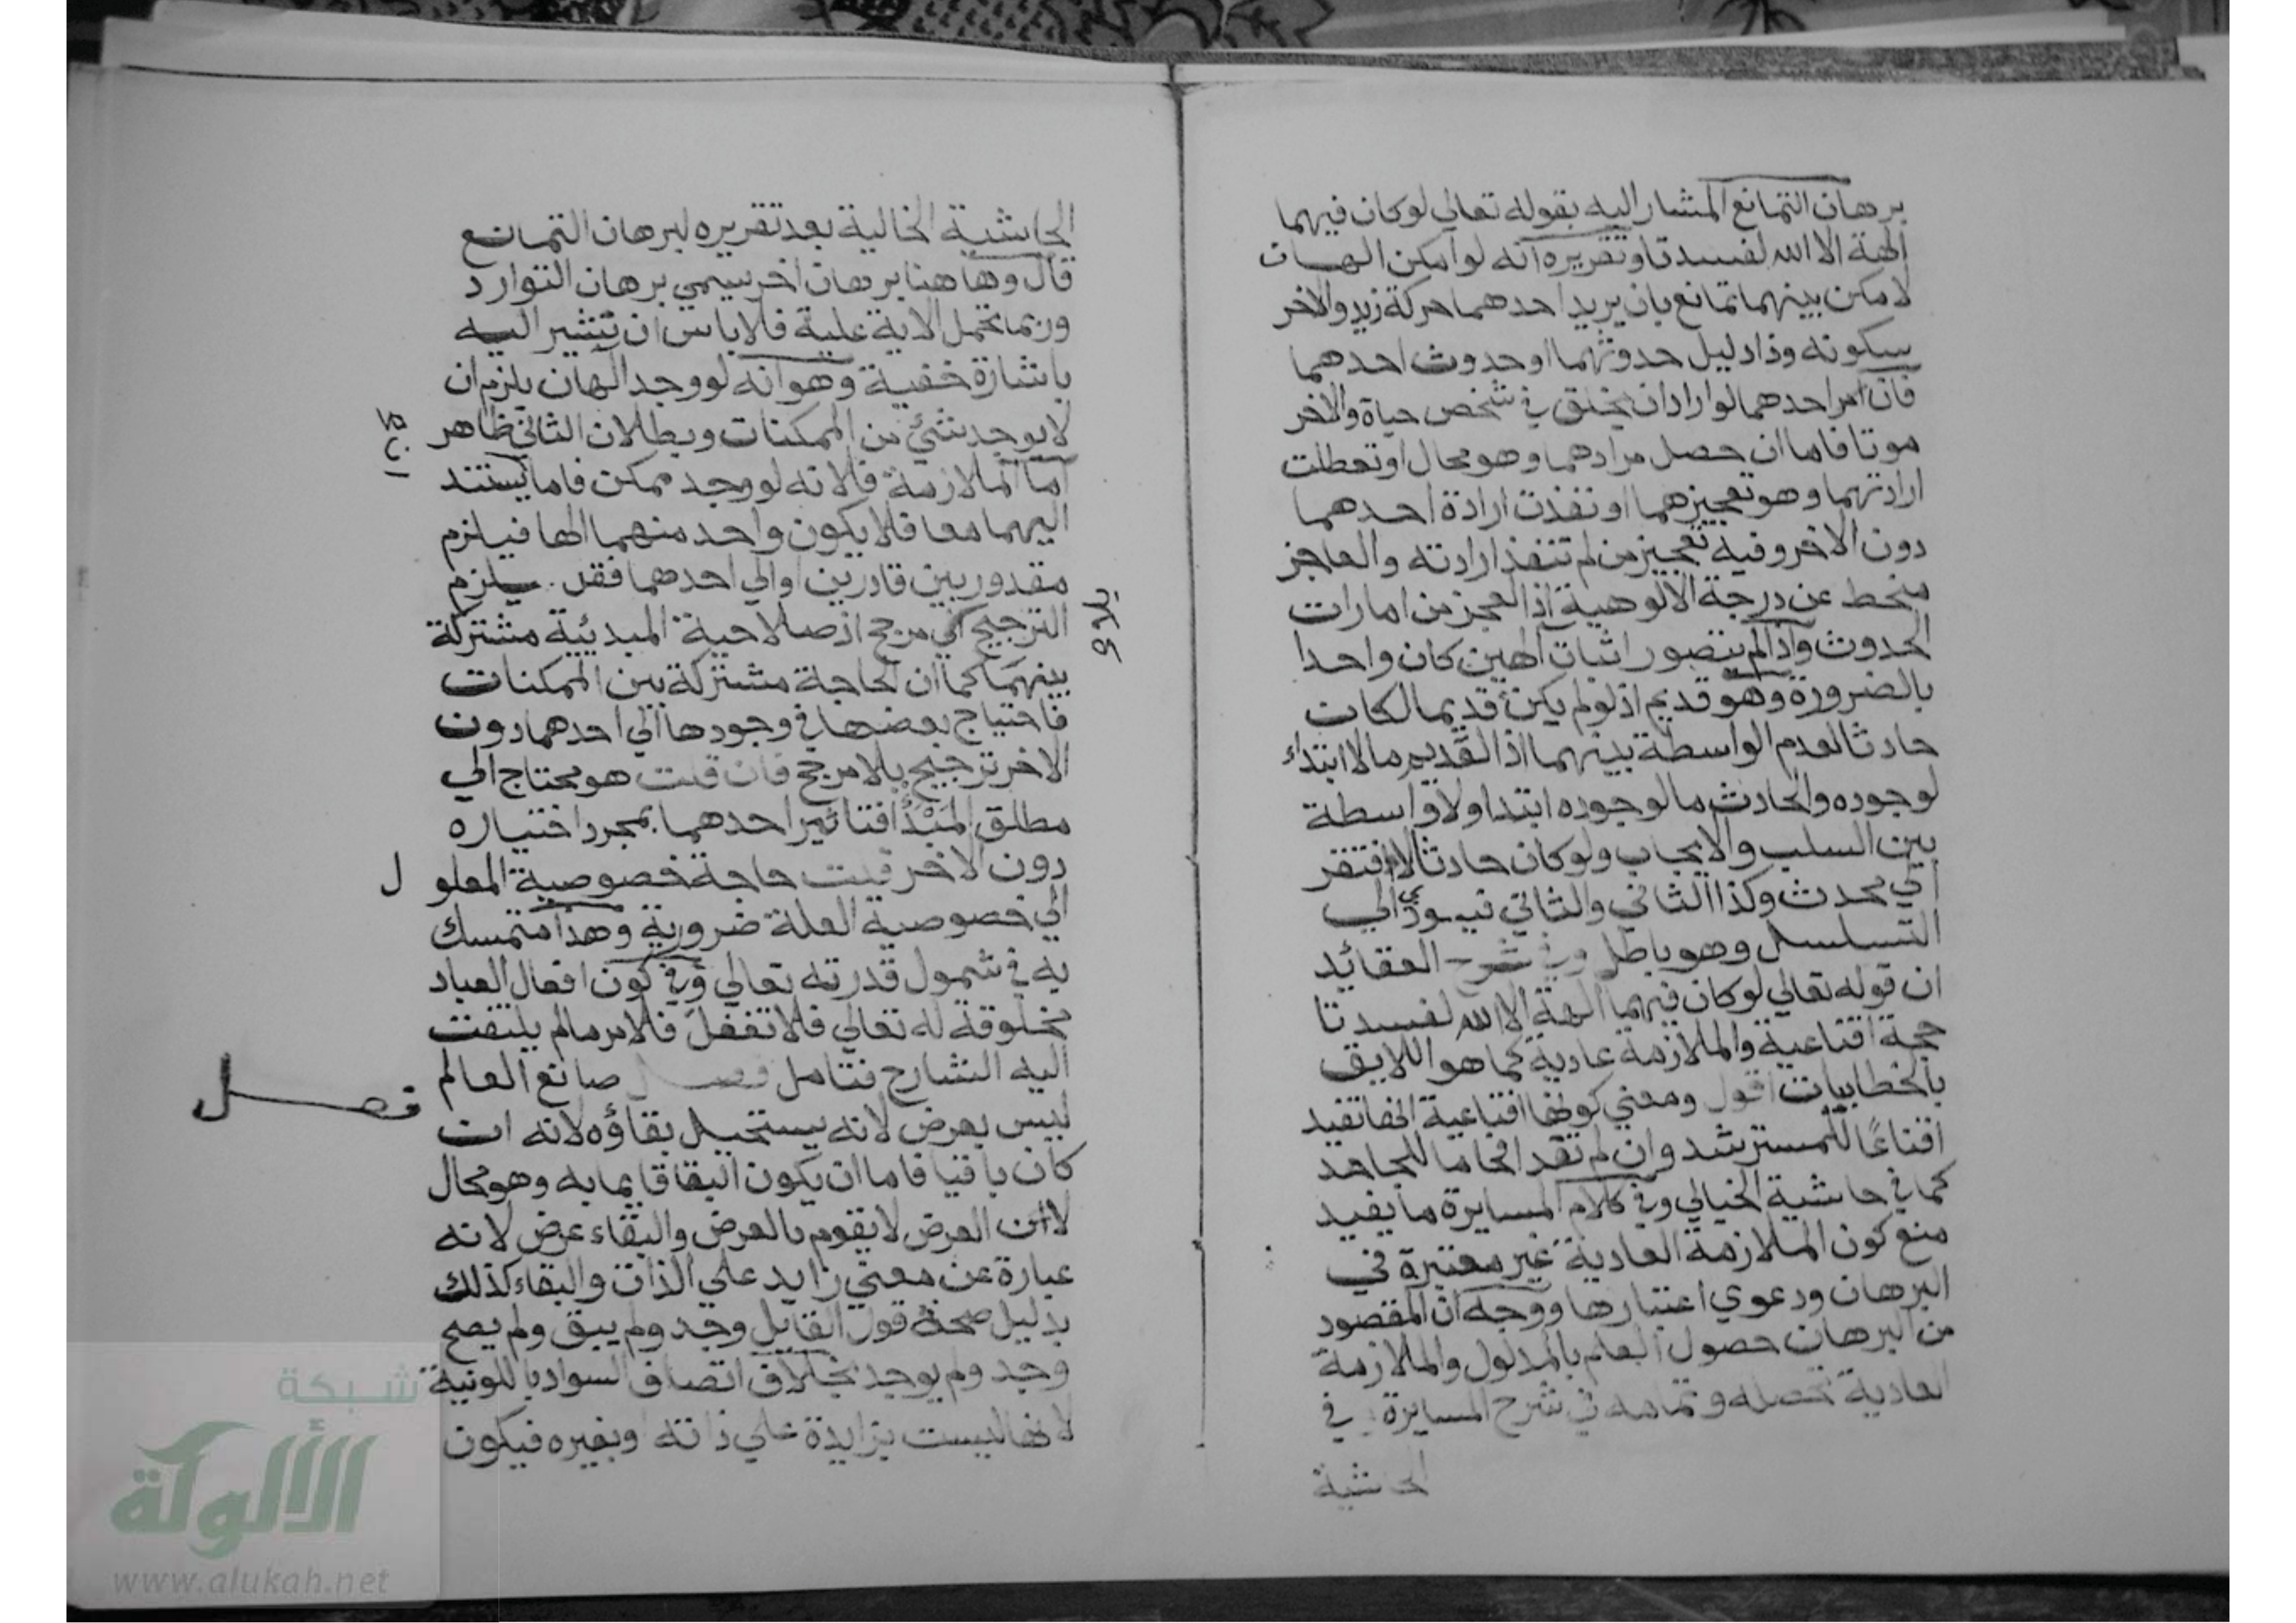 برهان التمانع المشار اليه بقوله تعالي لوكان فيهما
الهة الا الله لفسدتا وتقريره انه لو امكن الهان
لا مكن بينهما تمانع بان يريد احدهما حركة زيد والاخر
سكونه وذا دليل حدوثهما او حدوث احدهما
فان امر احدهما لو اراد ان يخلق في شخص حياة والاخر
موتا فاما ان حصل مرادهما وهو محال او تعطلت
ارادتهما وهو تعجيزهما او نفذت ارادة احدهما
دون الاخر وفيه تعجيز من لم تنفذ ارادته والعاجز
منحط عن درجة الالوهية اذ العجز من امارات
الحدوث واذا لم يتصور اثبات الهين كان واحدا
بالضرورة وهو قديم اذ لو لم يكن قديما لكان
حادثا لعدم الواسطة بينهما اذ القديم مالا ابتداء
لوجوده والحادث ما لوجوده ابتدا ولا واسطة
بين السلب والايجاب ولو كان حادثا لافتقر
الي محدث وكذا الثاني والثاني فيودي الي
التسلسل وهو باطل وفي شرح العقائد
ان قوله تعالي لوكان فيهما الهة الا الله لفسدتا
حجة اقناعية والملازمة عادية كما هو اللايق
بالخطابيات اقول ومعني كونها اقناعية انها تفيد
اقناعًا للمسترشد وان لم تفد افحاما للجاحد
كما في حاشية الخيالي وفي كلام المسايرة ما يفيد
منع كون الملازمة العادية غير معتبرة في
البرهان ودعوي اعتبارها ووجه ان المقصود
من البرهان حصول العلم بالمدلول والملازمة
العادية تحصله وتمامه في شرح المسايرة في
الحاشية
الحاشية الخالية بعد تقريره لبرهان التمانع
قال وهاهنا برهان اخر سمي برهان التوارد
وربما تحمل الاية علية فلا باس ان تشير اليه
باشارة خفية وهو انه لو وجد الهان يلزم ان
لا يوجد شئ من الممكنات وبطلان الثاني ظاهر
اما الملازمة فلانه لو وجد ممكن فاما يستند
اليهما معا فلا يكون واحد منهما الها فيلزم
مقدور بين قادرين او الي احدهما فقل يلزم
الترجيح الي مرجح اذ صلاحية المبدئية مشتركة
بينهما كما ان الحاجة مشتركة بين الممكنات
فاحتياج بعضها في وجودها الي احدهما دون
الاخر ترجيح بلا مرجح فان قلت هو محتاج الي
مطلق المبدأ فتاثير احدهما بمجرد اختياره
دون الاخر قلت حاجة خصوصية المعلول
الي خصوصية العلة ضرورية وهذا متمسك
به في شمول قدرته تعالي وفي كون افعال العباد
مخلوقة له تعالي فلا تغفل فلامر مالم يلتفت
اليه الشارح فتامل فصل صانع العالم
فصل
ليس بعرض لانه يستحيل بقاؤه لانه ان
كان باقيا فاما ان يكون البقا قايما به وهو محال
لان العرض لا يقوم بالعرض والبقاء عرض لانه
عبارة عن معني زايد علي الذات والبقاء كذلك
بدليل صحة قول القايل وجد ولم يبق ولم يصح
وجد ولم يوجد بخلاف اتصاف السواد باللونية
لانها ليست بزايدة علي ذاته وبغيره فيكون
شبكة
الألوكة
www.alukah.net